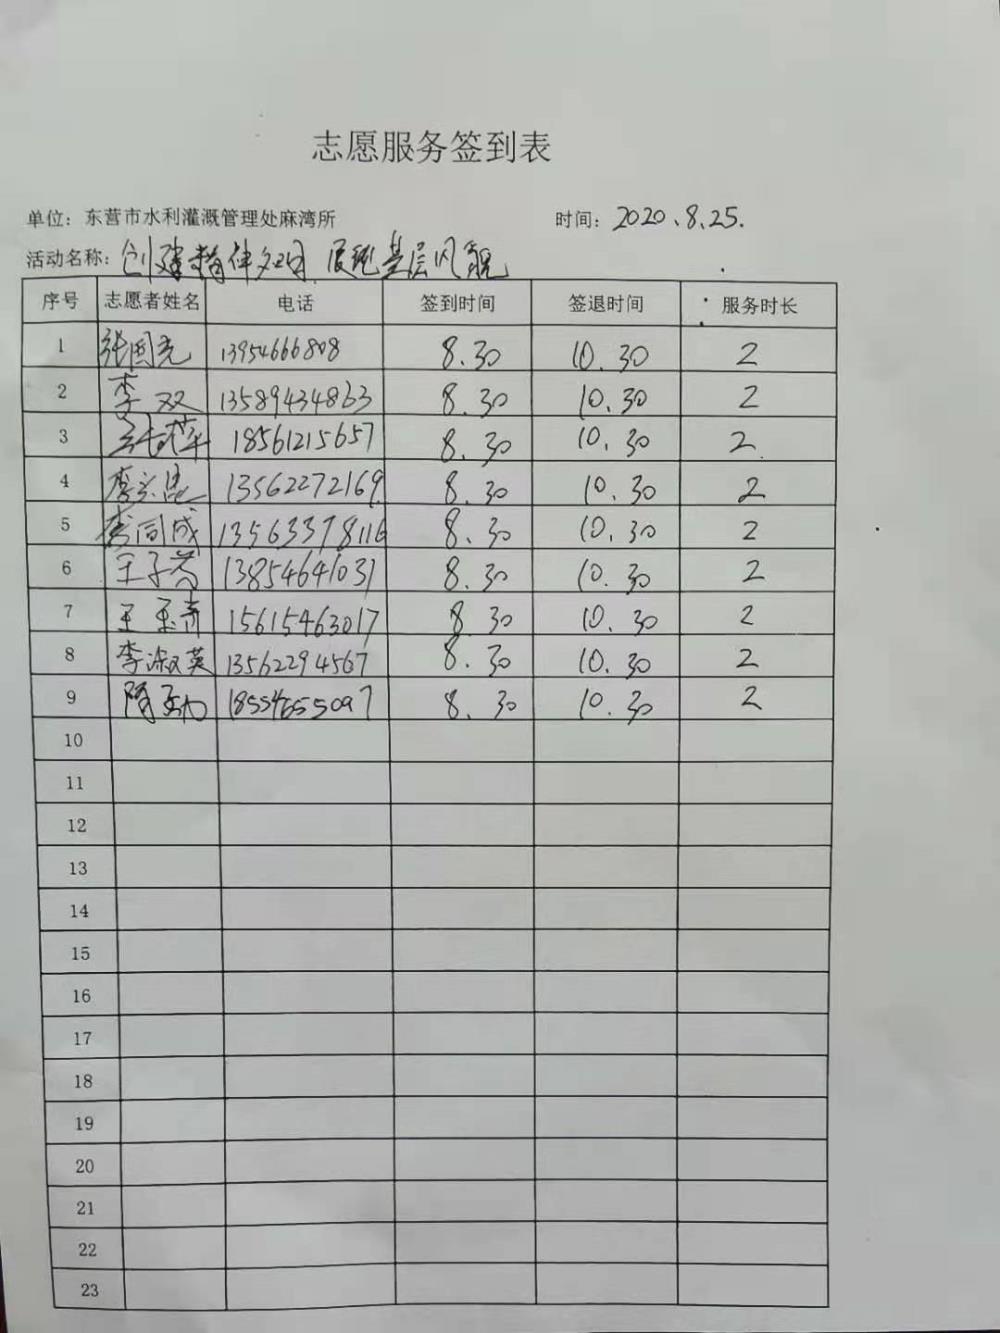 志愿服务签到表
单位：东营市水利灌溉管理处麻湾所 时间：2020.8.25.
活动名称：创建精神文明 展现基层风貌
序号 志愿者姓名 电话 签到时间 签退时间 服务时长
1 张国亮 13954666808 8.30 10.30 2
2 李双 13589434863 8.30 10.30 2
3 18561215657 8.30 10.30 2
4 13562272169 8.30 10.30 2
5 李同成 13563378116 8.30 10.30 2
6 王子芳 13854641031 8.30 10.30 2
7 15615463017 8.30 10.30 2
8 李淑英 13562294567 8.30 10.30 2
9 18554655097 8.30 10.30 2
10
11
12
13
14
15
16
17
18
19
20
21
22
23